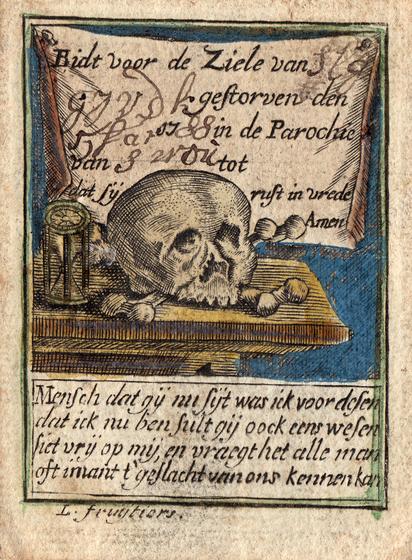 Bidt voor de Ziele van
gestorven den
in de Parochie
van tot
dat sij rust in vrede
Amen
Mensch dat gij nu sijt was ick voor desen
dat ick nu ben sult gij oock eens wesen
siet vrij op mij en vraegt het alle man
oft imant t'geslacht van ons kennen kan
L. fruijtiers.